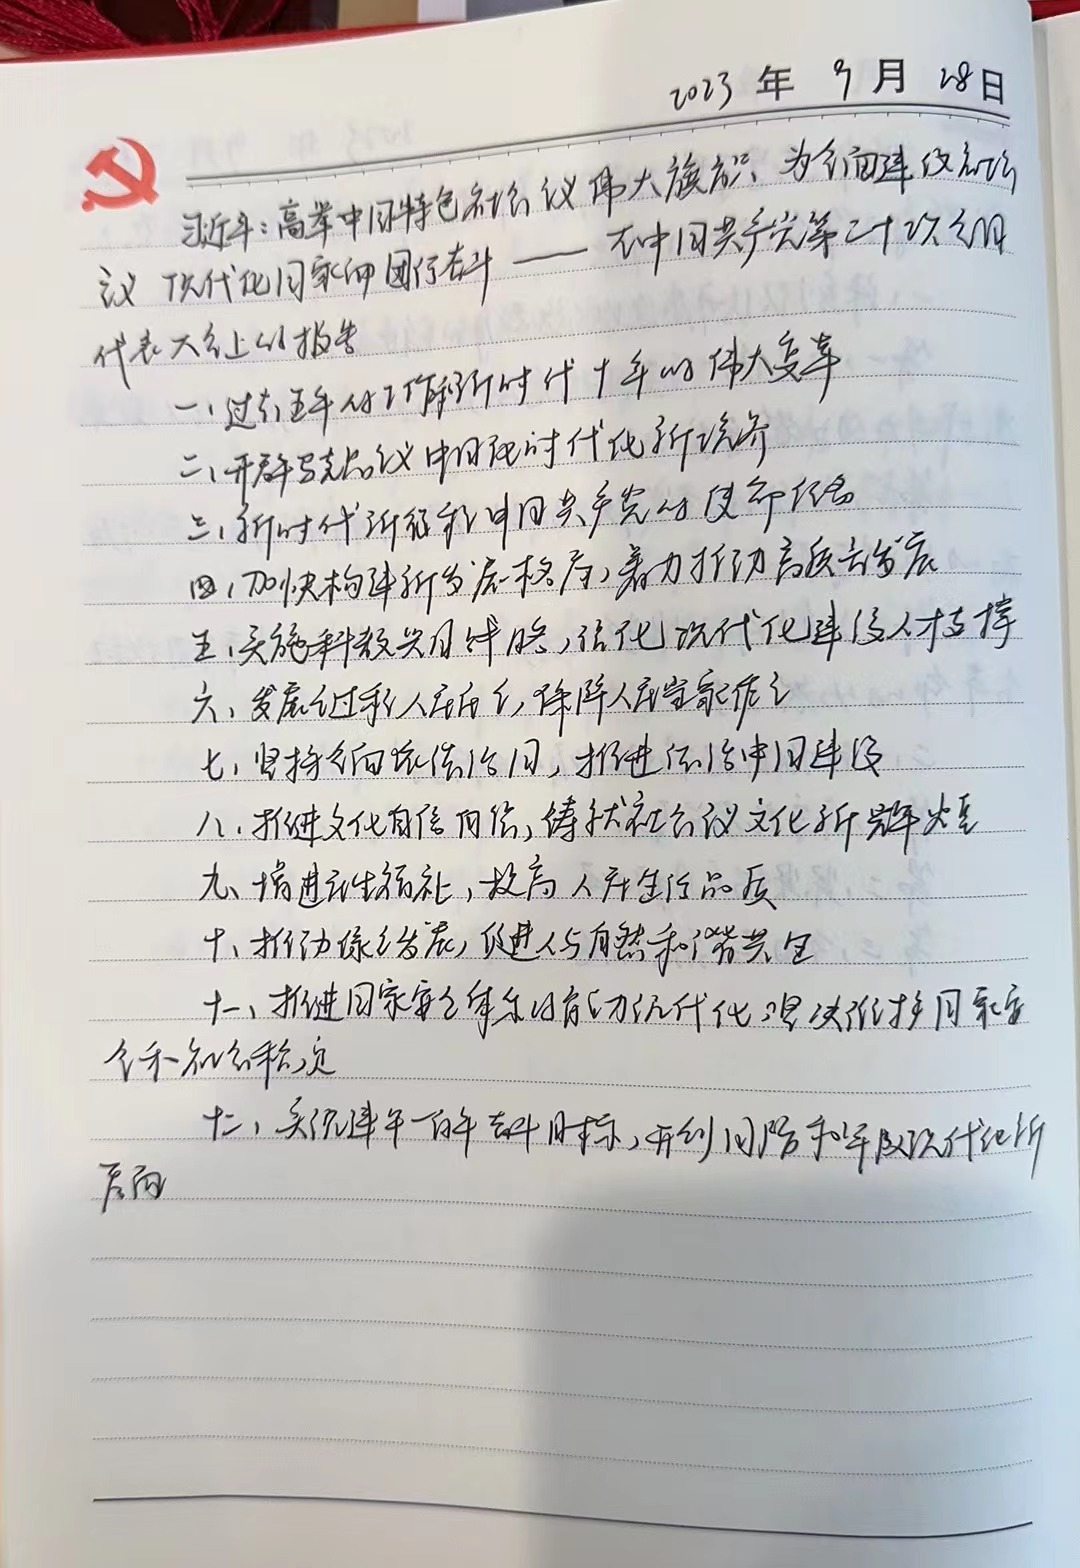 2023年9月28日
习近平：高举中国特色社会主义伟大旗帜 为全面建设社会
主义现代化国家而团结奋斗——在中国共产党第二十次全国
代表大会上的报告
一、过去五年的工作和新时代十年的伟大变革
二、开辟马克思主义中国化时代化新境界
三、新时代新征程中国共产党的使命任务
四、加快构建新发展格局，着力推动高质量发展
五、实施科教兴国战略，强化现代化建设人才支撑
六、发展全过程人民民主，保障人民当家作主
七、坚持全面依法治国，推进法治中国建设
八、推进文化自信自强，铸就社会主义文化新辉煌
九、增进民生福祉，提高人民生活品质
十、推动绿色发展，促进人与自然和谐共生
十一、推进国家安全体系和能力现代化，坚决维护国家安
全和社会稳定
十二、实现建军一百年奋斗目标，开创国防和军队现代化新
局面